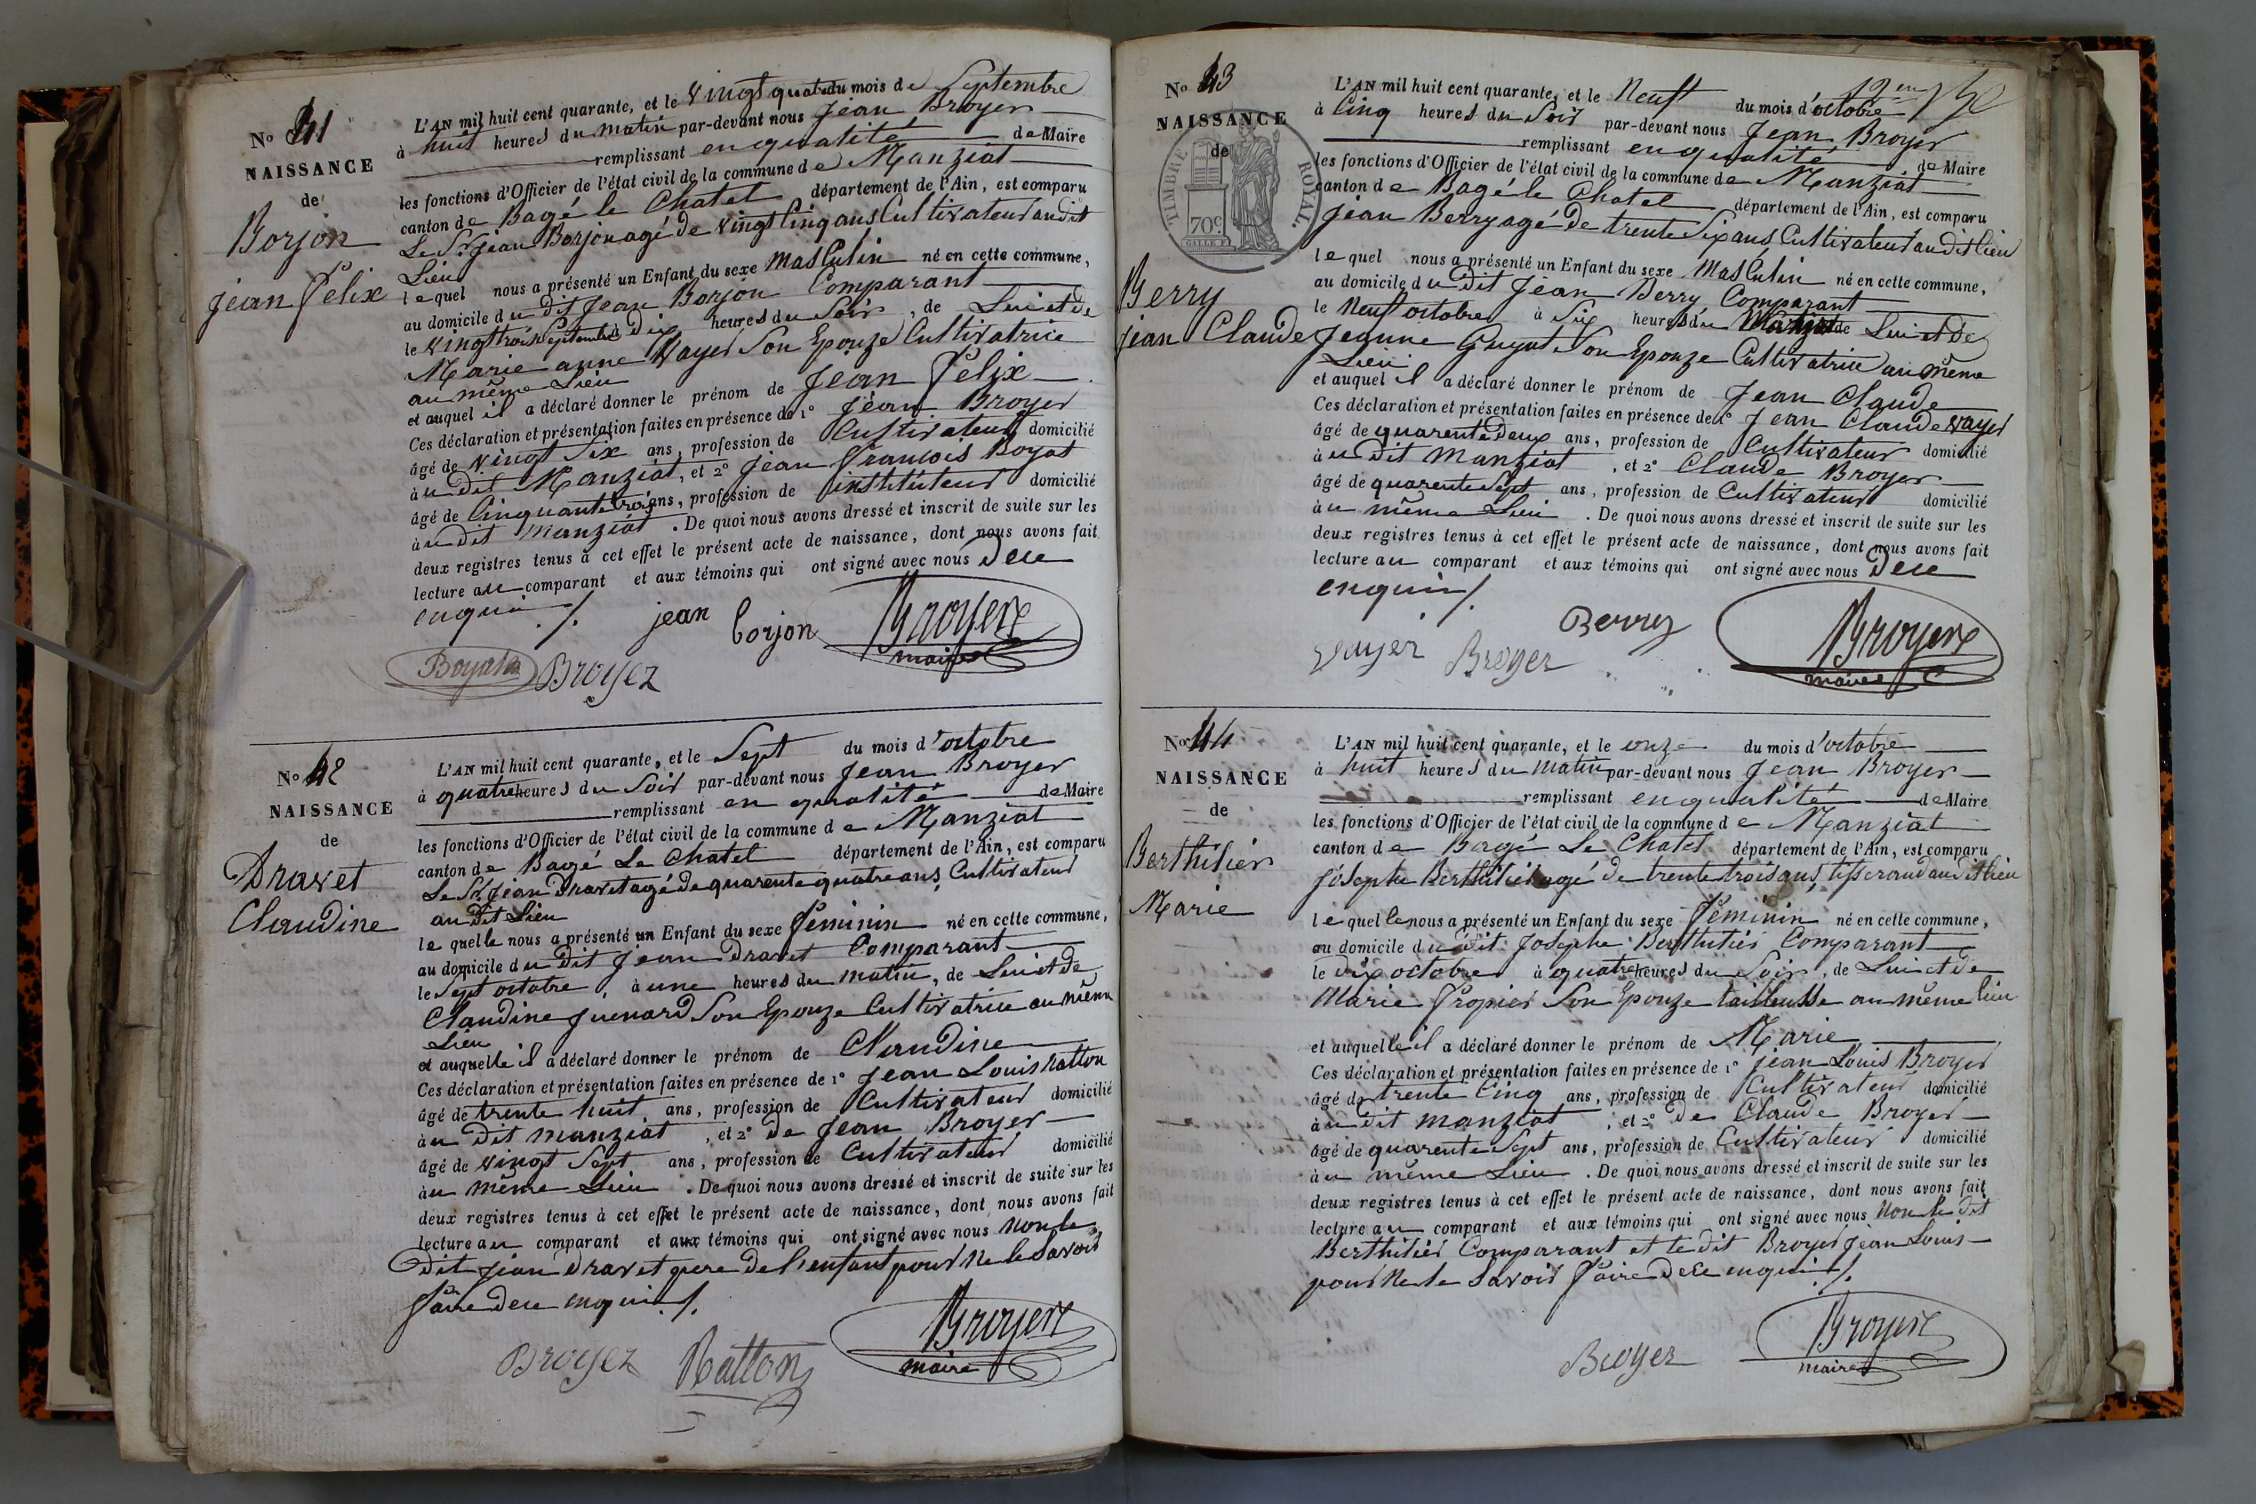 N° 41
NAISSANCE
de
Borjon
jean Félix
L'AN mil huit cent quarante, et le vingt quatre du mois de Septembre
à huit heures du matin par-devant nous Jean Broyer
remplissant en qualité de Maire
les fonctions d'Officier de l'état civil de la commune de Manziat
canton de Bagé le Chatel département de l'Ain, est comparu
Le Sr. jean Borjon agé de vingt Cinq ans Cultivateur au dit
Lieu
lequel nous a présenté un Enfant du sexe Masculin né en cette commune,
au domicile du dit Jean Borjon Comparant
le vingt trois Septembre à dix heures du Soir, de Lui et de
Marie anne Vayer Son Epouze Cultivatrice
au même Lieu
et auquel il a déclaré donner le prénom de Jean Félix
Ces déclaration et présentation faites en présence de 1° Jean Broyer
âgé de vingt Six ans, profession de Cultivateur domicilié
à u dit Manziat, et 2° Jean François Boyat
âgé de Cinquante trois ans, profession de instituteur domicilié
à u dit manziat. De quoi nous avons dressé et inscrit de suite sur les
deux registres tenus à cet effet le présent acte de naissance, dont nous avons fait
lecture au comparant et aux témoins qui ont signé avec nous de ce
enquis /.
jean borjon Broyer
maire
Boyat Broyer
N° 42
NAISSANCE
de
Dravet
Claudine
L'AN mil huit cent quarante, et le Sept du mois d'octobre
à quatre heures du Soir par-devant nous Jean Broyer
remplissant en qualité de Maire
les fonctions d'Officier de l'état civil de la commune de Manziat
canton de Bagé Le Chatel département de l'Ain, est comparu
Le Sr. Jean Dravet agé de quarente quatre ans Cultivateur
au dit Lieu
lequel le nous a présenté un Enfant du sexe féminin né en cette commune,
au domicile du dit Jean Dravet Comparant
le Sept octobre, à une heures du matin, de Lui et de
Claudine Juenard Son Epouze Cultivatrice au même
Lieu
et auquelle il a déclaré donner le prénom de Claudine
Ces déclaration et présentation faites en présence de 1° Jean Louis Ratton
âgé de trente huit ans, profession de Cultivateur domicilié
à u dit manziat, et 2° de Jean Broyer
âgé de vingt Sept ans, profession de Cultivateur domicilié
à u même Lieu. De quoi nous avons dressé et inscrit de suite sur les
deux registres tenus à cet effet le présent acte de naissance, dont nous avons fait
lecture au comparant et aux témoins qui ont signé avec nous non le
dit jean Dravet pere de l'enfant pour ne le Savoir
faire de ce enquis /.
Broyer Ratton Broyer
maire
N° 43
NAISSANCE
de
TIMBRE ROYAL
70c
Berry
jean Claude
L'AN mil huit cent quarante, et le Neuf du mois d'octobre
à Cinq heures du Soir par-devant nous Jean Broyer
remplissant en qualité de Maire
les fonctions d'Officier de l'état civil de la commune de Manziat
canton de Bagé le Chatel département de l'Ain, est comparu
jean Berry agé de trente Six ans Cultivateur au dit lieu
lequel nous a présenté un Enfant du sexe Masculin né en cette commune,
au domicile du dit Jean Berry Comparant
le Neuf octobre à Six heures du Matin de Lui et de
Jeanne Guyat Son Epouze Cultivatrice au même
Lieu
et auquel il a déclaré donner le prénom de Jean Claude
Ces déclaration et présentation faites en présence de 1° Jean Claude Vayer
âgé de quarente deux ans, profession de Cultivateur domicilié
à u dit Manziat, et 2° Claude Broyer
âgé de quarente Sept ans, profession de Cultivateur domicilié
à u même Lieu. De quoi nous avons dressé et inscrit de suite sur les
deux registres tenus à cet effet le présent acte de naissance, dont nous avons fait
lecture au comparant et aux témoins qui ont signé avec nous de ce
enquis /.
Berry Broyer
maire
vayer Broyer
N° 44
NAISSANCE
de
Berthilier
Marie
L'AN mil huit cent quarante, et le onze du mois d'octobre
à huit heures du matin par-devant nous Jean Broyer
remplissant en qualité de Maire
les fonctions d'Officier de l'état civil de la commune de Manziat
canton de Bagé Le Chatel département de l'Ain, est comparu
Joseph Berthilier agé de trente trois ans tisserand au dit lieu
lequel le nous a présenté un Enfant du sexe féminin né en cette commune,
au domicile du dit Josephe Berthilier Comparant
le dix octobre à quatre heures du Soir, de Lui et de
Marie Propier Son Epouze tailleusse au même lieu
et auquelle il a déclaré donner le prénom de Marie
Ces déclaration et présentation faites en présence de 1° jean Louis Broyer
âgé de trente Cinq ans, profession de Cultivateur domicilié
à u dit manziat, et 2° de Claude Broyer
âgé de quarente Sept ans, profession de Cultivateur domicilié
à u même Lieu. De quoi nous avons dressé et inscrit de suite sur les
deux registres tenus à cet effet le présent acte de naissance, dont nous avons fait
lecture au comparant et aux témoins qui ont signé avec nous Non le dit
Berthilier Comparant et le dit Broyer jean Louis
pour Ne le Savoir faire de ce enquis /.
Broyer Broyer
maire